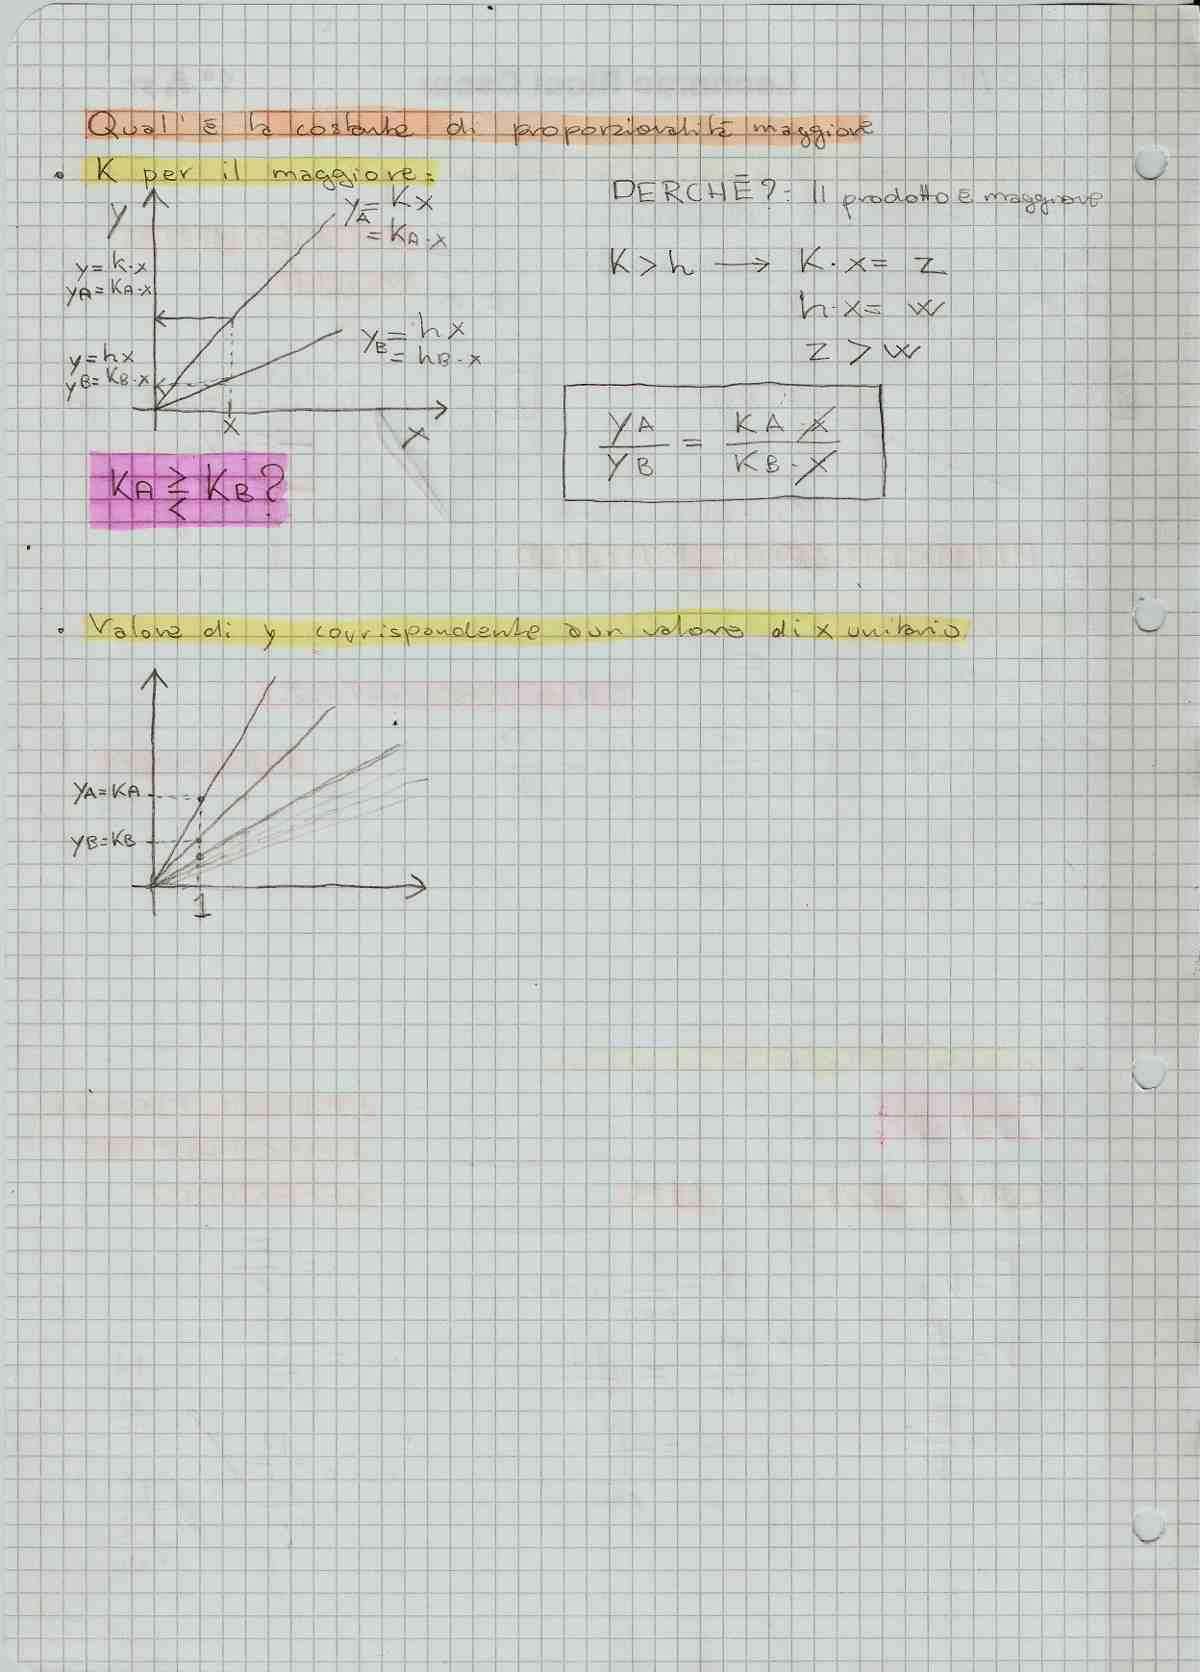 Qual'è la costante di proporzionalità maggiore
• K per il maggiore:
y
yA = Kx
= KA·x
y = k·x
yA = KA·x
yB = hx
= hB·x
y = hx
yB = KB·x
x
x
PERCHÉ?: Il prodotto è maggiore
K > h → K·x = z
h·x = w
z > w
yA/yB = KA·x/KB·x
KA ⪌ KB?
• Valore di y corrispondente a un valore di x unitario
yA = KA
yB = KB
1